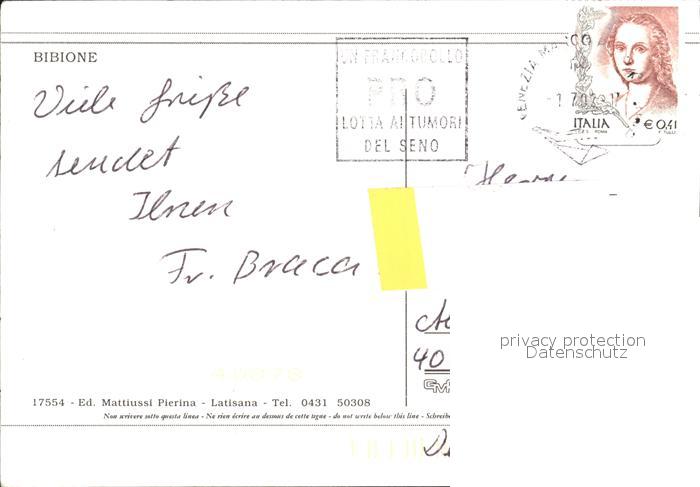 BIBIONE
Viele Grüße
sendet
Ihnen
Fr. Braca
UN FRANCOBOLLO
PRO
LOTTA AI TUMORI
DEL SENO
VENEZIA
ITALIA
€ 0,41
40
privacy protection
Datenschutz
17554 - Ed. Mattiussi Pierina - Latisana - Tel. 0431 50308
Non scrivere sotto questa linea - Ne rien écrire au dessous de cette ligne - do not write below this line - Schreibe